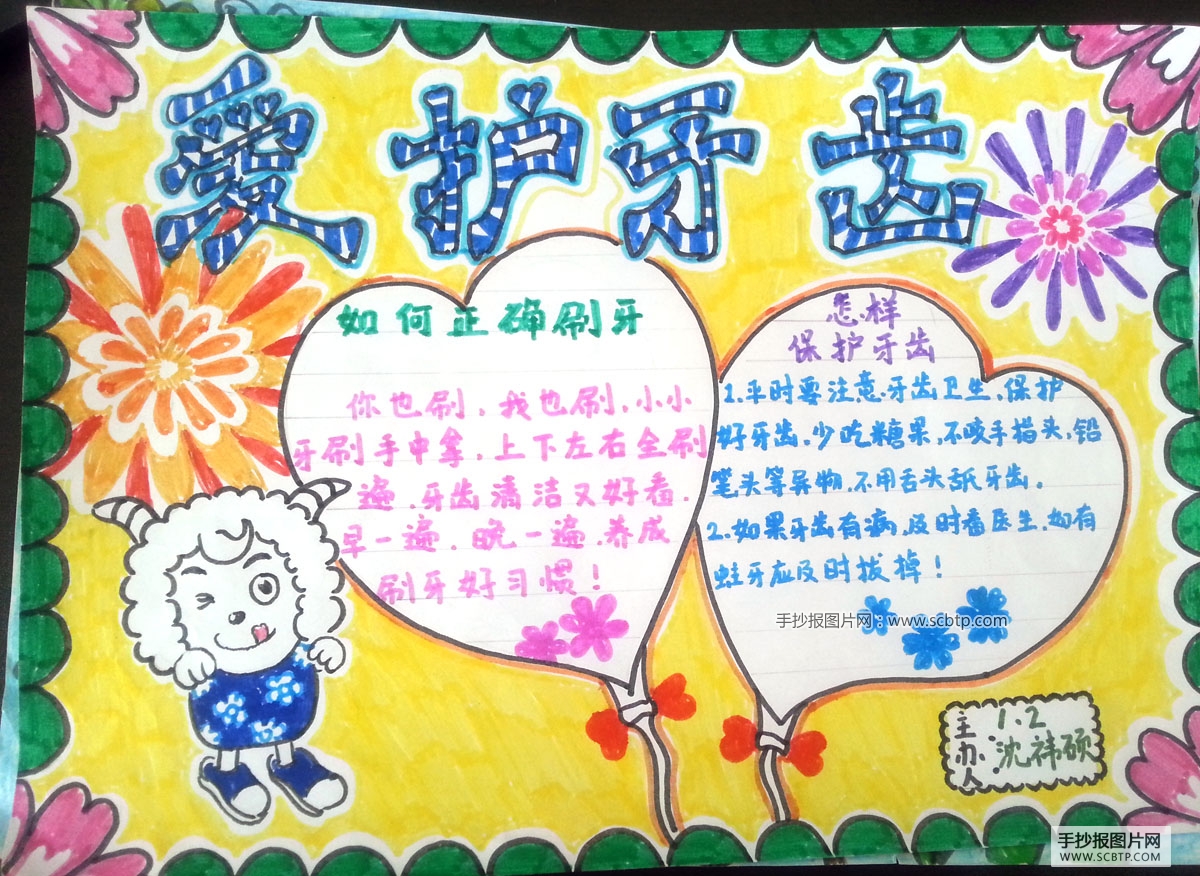 爱护牙齿
如何正确刷牙
你也刷，我也刷，小小
牙刷手中拿，上下左右全刷
遍，牙齿清洁又好看，
早一遍，晚一遍，养成
刷牙好习惯！
怎样
保护牙齿
1.平时要注意牙齿卫生，保护
好牙齿，少吃糖果，不咬手指头，铅
笔头等异物，不用舌头舐牙齿。
2.如果牙齿有病，及时看医生，如有
蛀牙应及时拔掉！
手抄报图片网：www.scbtp.com
主办人：
1.2
沈祎硕
手抄报图片网
WWW.SCBTP.COM